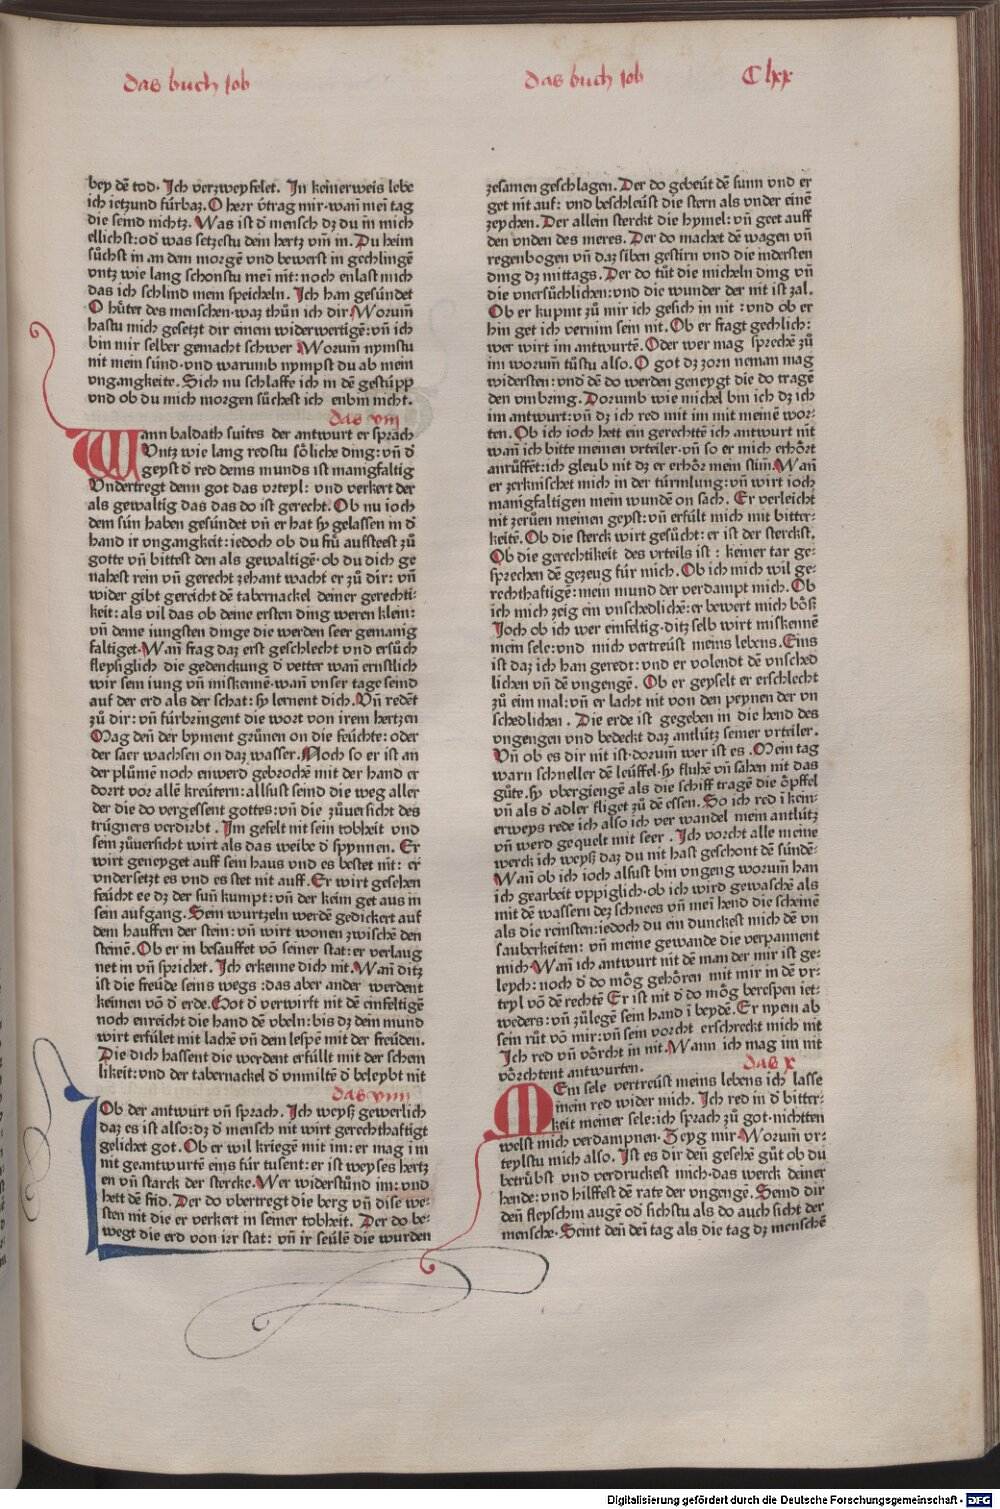 das buch Job
das buch Job
C lxx
bey dē tod. Ich verzweyfelet. In keinerweis lebe
ich ietzund fúrbaz. O herr v̓trag mir. wañ mei tag
die seind nichtz. Was ist d̓ mensch dz du in mich
ellichst: od̓ was setzestu dein hertz vm̄ in. Du heim
sůchst in an dem morgē vnd bewerst in gechlingē
vntz wie lang schonstu mei nit: noch enlast mich
das ich schlind mein speicheln. Ich han gesúndet
O hůter des menschen. waz thůn ich dir. Worum̄
hastu mich gesetzt dir einen widerwertigē: vñ ich
bin mir selber gemacht schwer. Worum̄ nymstu
nit mein súnd. vnd warumb nympst du ab mein
vngangkeite. Sich nu schlaffe ich in dē gestúpp
vnd ob du mich morgen sůchest ich enbin nicht.
das viij
Wann baldath suites der antwurt er sprach
Vntz wie lang redstu sőliche ding: vñ d̓
geyst d̓ red deins munds ist manigfaltig
Vndertregt denn got das vrteyl: vnd verkert der
als gewaltig das das do ist gerecht. Ob nu ioch
dem sún haben gesúndet vñ er hat sy gelassen in d̓
hand ir vngangkeit: iedoch ob du frů auffsteest zů
gotte vñ bittest den als gewaltigē. ob du dich ge
nahest rein vñ gerecht zehant wacht er zů dir: vñ
wider gibt gereicht dē tabernackel deiner gerechti-
keit: als vil das ob deine ersten ding weren klein:
vñ deine iungsten dinge die werden seer gemanig
faltiget. Wañ frag daz erst geschlecht vnd ersůch
fleyssiglich die gedenckung d̓ vetter wañ ernstlich
wir sein iung vñ miskennē. wañ vnser tage seind
auf der erd als der schat: sy lernent dich. Vñ redēt
zů dir: vñ fúrbringent die wort von irem hertzen
Mag deñ der byment grůnen on die feúchte: oder
der saer wachsen on daz wasser. Noch so er ist an
der plůmē noch enwerd gebrochē mit der hand er
dorrt vor allē kreútern: allsust seind die weg aller
der die do vergessent gottes: vñ die zůuersicht des
trúgners verdirbt. Im gefelt nit sein tobheit vnd
sein zůuersicht wirt als das weibe d̓ spynnen. Er
wirt geneyget auff sein haus vnd es bestet nit: er
vndersetzt es vnd es stet nit auff. Er wirt gesehen
feúcht ee dz der suñ kumpt: vñ der keim get aus in
sein aufgang. Sein wurtzeln werdē gedickert auf
dem hauffen der stein: vñ wirt wonen zwischē den
steinē. Ob er in besauffet vō seiner stat: er verlaug
net in vñ sprichet. Ich erkenne dich nit. Wañ ditz
ist die freúde seins wegs: das aber ander werdent
keimen vō d̓ erde. Got d̓ verwirft nit dē einfeltigē
noch enreicht die hand dē vbeln: bis dz dein mund
wirt erfúlet mit lachē vñ dein lespē mit der freúden.
Die dich hassent die werdent erfúllt mit der schem
likeit: vnd der tabernackel d̓ vnmiltē d̓ beleybt nit
das viiij
Iob der antwurt vñ sprach. Ich weysz gewerlich
daz es ist also: dz d̓ mensch nit wirt gerechthaftigt
gelichet got. Ob er wil kriegē mit im: er mag im
nit geantwurtē eins fúr tusent: er ist weyses hertz
en vñ starck der stercke. Wer widerstůnd im: vnd
hett dē frid. Der do vbertregt die berg vñ dise we-
sten nit die er verkert in seiner tobheit. Der do be-
wegt die erd von irr stat: vñ ir seúlē die wurden
zesamen geschlagen. Der do gebeút dē sunn vnd er
get nit auf: vnd beschleúst die stern als vnder einē
zeychen. Der allein sterckt die hymel: vñ geet auff
den vnden des meres. Der do machet dē wagen vñ
regenbogen vñ daz siben gestirn vnd die indersten
ding dz mittags. Der do tůt die micheln ding vñ
die vnersůchlichen: vnd die wunder der nit ist zal.
Ob er kupmt zů mir ich gesich in nit: vnd ob er
hin get ich vernim sein nit. Ob er fragt gechlich:
wer wirt im antwurtē. Oder wer mag sprechē zů
im worum̄ tůstu also. O got dz zorn neman mag
widersten: vnd dē do werden geneygt die do tragē
den vmbring. Dorumb wie michel bin ich dz ich
im antwurt: vñ dz ich red mit im mit meinē wor-
ten. Ob ich ioch hett ein gerechttē ich antwurt nit
wañ ich bitte meinen vrteiler. vñ so er mich erhőrt
anrúffēt: ich gleub nit dz er erhőr mein stim̄. Wañ
er zerknischet mich in der túrmlung: vñ wirt ioch
manigfaltigen mein wundē on sach. Er verleicht
nit zerůen meinen geyst: vñ erfúlt mich mit bitter-
keitē. Ob die sterck wirt gesůcht: er ist der sterckst.
Ob die gerechtikeit des vrteils ist: keiner tar ge-
sprechen dē gezeug fúr mich. Ob ich mich wil ge-
rechthaftigē: mein mund der verdampt mich. Ob
ich mich zeig ein vnschedlichē: er bewert mich bősz
Ioch ob ich wer einfeltig. ditz selb wirt miskennē
mein sele: vnd mich vertreúst meins lebens. Eins
ist daz ich han geredt: vnd er volendt dē vnsched
lichen vñ dē vngengē. Ob er geyselt er erschlecht
zů eim mal: vñ er lacht nit von den peynen der vn
schedlichen. Die erde ist gegeben in die hend des
vngengen vnd bedeckt daz antlútz seiner vrteiler.
Vñ ob es dir nit ist. dorum̄ wer ist es. Mein tag
warn schneller dē leúffel. sy fluhē vñ sahen nit das
gůte. sy vbergiengē als die schiff tragē die őpffel
vñ als d̓ adler fliget zů dē essen. So ich red i kein-
erweys rede ich also ich ver wandel mein antlútz
vñ werd gequelt mit seer. Ich vorcht alle meine
werck ich weysz daz du nit hast geschont dē súndē-
Wañ ob ich ioch alsust bin vngeng worum̄ han
ich gearbeit vppiglich. ob ich wird gewaschē als
mit dē wassern dez schnees vñ mei hend die scheinē
als die reinsten: iedoch du ein dunckest mich dē vn
sauberkeiten: vñ meine gewande die verpannent
mich. Wañ ich antwurt nit dē man der mir ist ge-
leych: noch d̓ do mőg gehőren mit mir in dē vr-
teyl vō dē rechtē Er ist nit d̓ do mőg berespen iet-
weders: vñ zůlegē sein hand i beydē. Er nyem ab
sein růt vō mir: vñ sein vorcht erschreckt mich nit
Ich red vñ vőrcht in nit. Wann ich mag im nit
vőrchtent antwurten.
das x
Mein sele vertreúst meins lebens ich lasse
mein red wider mich. Ich red in d̓ bitter-
keit meiner sele: ich sprach zů got. nichtten
welst mich verdampnen. Zeyg mir. Worum̄ vr-
teylstu mich also. Ist es dir deñ gesehē gůt ob du
betrúbst vnd verdruckest mich. das werck deiner
hende: vnd hilffest dē rate der vngengē. Seind dir
deñ fleyschin augē od̓ sichstu als do auch sicht der
mensche. Seint deñ dei tag als die tag dz menschē
Digitalisierung gefördert durch die Deutsche Forschungsgemeinschaft - DFG